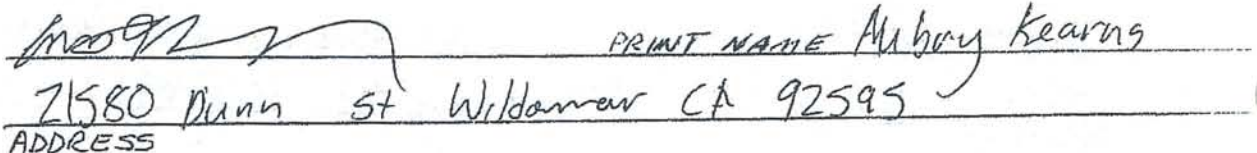 PRINT NAME Aubrey Kearns
21580 Dunn St Wildomar CA 92595
ADDRESS